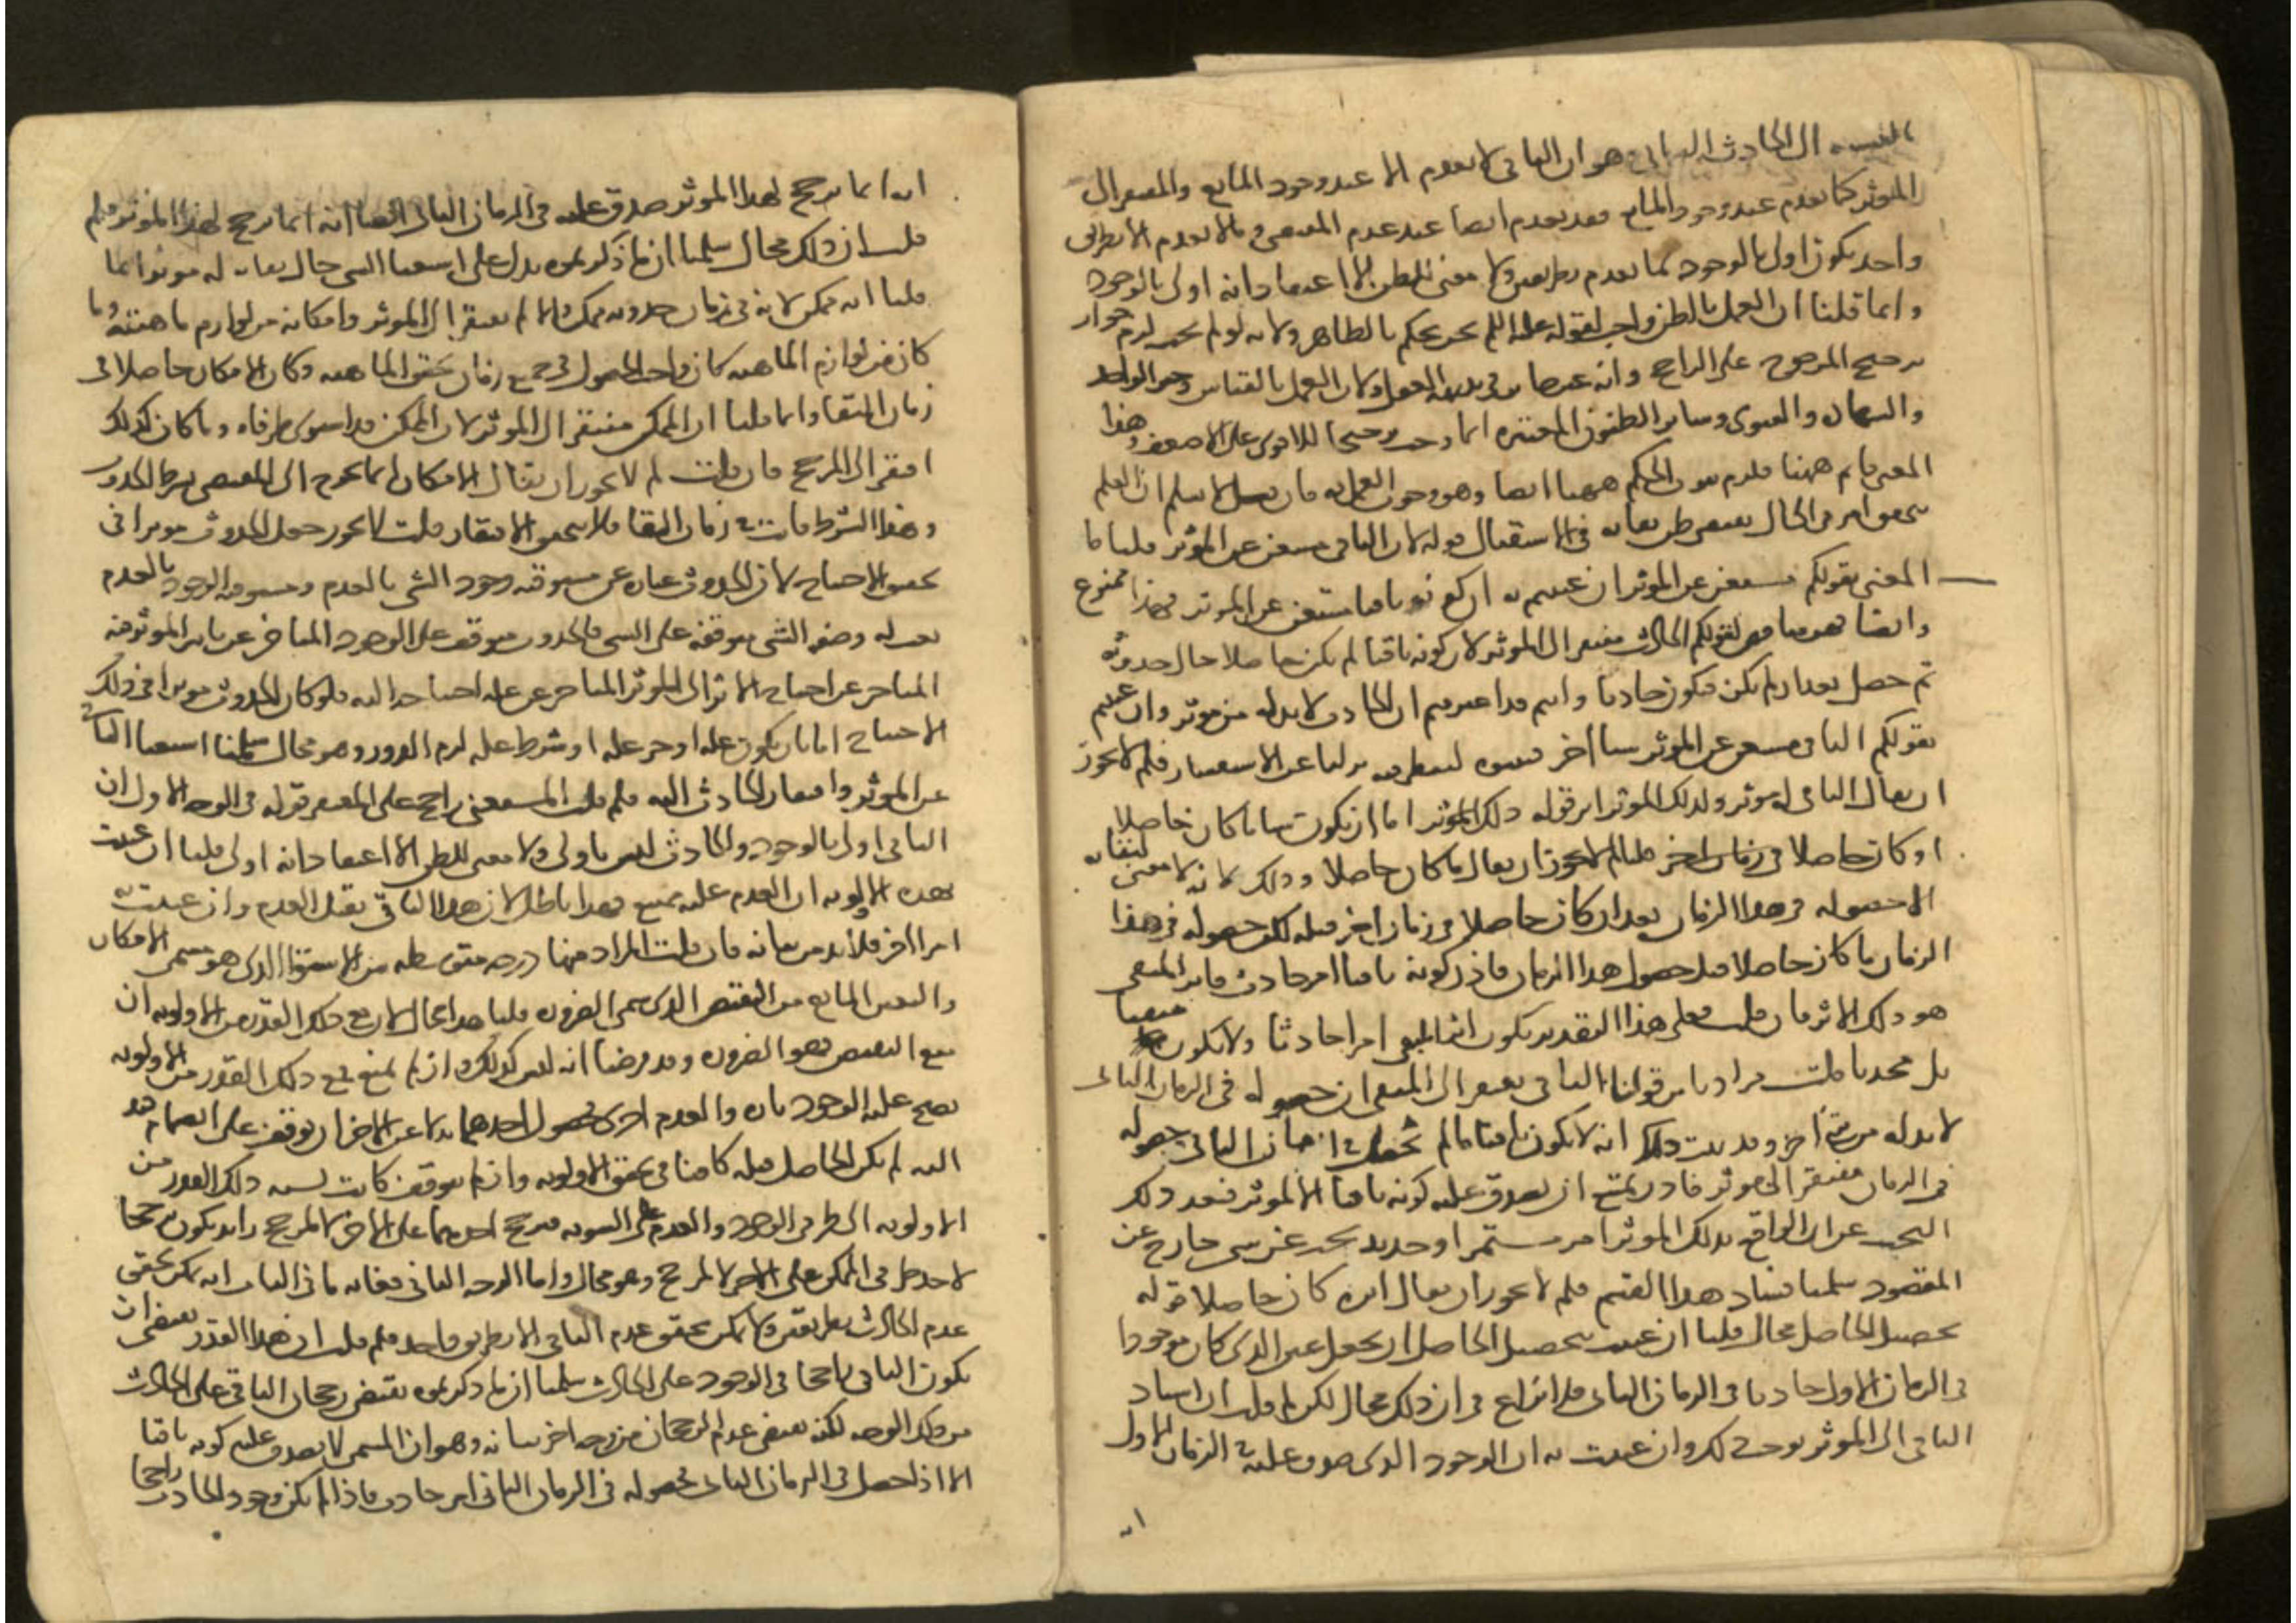 بالنسبة الى الحادث الباقى وهو ان الباقى لا يعدم الا عند وجود المانع والمفتقر الى
المؤثر كما يعدم عند وجود المانع فقد يعدم ايضا عند عدم المقتضى وما لا يعدم الا بطريق
واحد يكون اولى بالوجود مما يعدم بطريقين ولا معنى للظن الا اعتقاد انه اولى بالوجود
وانما قلنا ان العمل بالظن واجب لقوله عليه السلم نحن نحكم بالظاهر ولانه لو لم يجب لزم جواز
ترجيح المرجوح على الراجح وانه غير جايز فى بديهة العقل ولان العمل بالقياس وخبر الواحد
والشهادة والفتوى وساير الظنون المعتبره انما وجب ترجيحا للاقوى على الاضعف وهذا
المعنى قايم ههنا فلزم ثبوت الحكم ههنا ايضا وهو وجوب العمل به فان قيل لا نسلم ان العلم
بتحقق امر فى الحال يقتضى ظن بقائه فى الاستقبال قوله لان الباقى مستغن عن المؤثر قلنا ما
المعنى بقولكم مستغن عن المؤثر ان عنيتم به ان كونه باقيا مستغن عن المؤثر فهذا ممنوع
وايضا فهو مناقض لقولكم الحادث مفتقر الى المؤثر لان كونه باقيا لم يكن حاصلا حال حدوثه
ثم حصل بعد ان لم يكن فيكون حادثا وانتم قد اعترفتم ان الحادث لا بد له من مؤثر وان عنيتم
بقولكم الباقى مستغن عن المؤثر شيا اخر فبينوه لننظر فيه نزلنا عن الاستفسار فلم لا يجوز
ان يقال الباقى له مؤثر ولذلك المؤثر اثر قوله ذلك المؤثر اما ان يكون شيا ما كان حاصلا
او كان حاصلا فى زمان اخر قلنا لم لا يجوز ان يقال ما كان حاصلا وذلك لانه لا معنى لبقائه
الا حصوله فى هذا الزمان بعد ان كان حاصلا فى زمان اخر قبله لكن حصوله فى هذا
الزمان ما كان حاصلا قبل حصول هذا الزمان فاذن كونه باقيا امر حادث فاثر المبقى
هو ذلك الاثر فان قلت فعلى هذا التقدير يكون اثر المبقى امرا حادثا ولا يكون مبقيا
بل محدثا قلت مرادنا من قولنا الباقى يفتقر الى المبقى ان حصوله فى الزمان الثانى
لا بد له من شئ اخر وقد ثبت ذلك انه لا يكون باقيا ما لم يحصل فى الزمان الثانى وحصوله
فى الزمان مفتقر الى مؤثر فاذن يمتنع ان يصدق عليه كونه باقيا الا لمؤثر فبعد ذلك
البحث عن ان الواقع بذلك المؤثر امر مستمر او جديد بحث عن شى خارج عن
المقصود سلمنا فساد هذا القسم فلم لا يجوز ان يقال اثره كان حاصلا قوله
تحصيل الحاصل محال قلنا ان عنيت بتحصيل الحاصل ان يجعل عين الذى كان موجودا
فى الزمان الاول حادثا فى الزمان الثانى فلا نزاع فى ان ذلك محال لكن لم قلت ان اسناد
الباقى الى المؤثر يوجب ذلك وان عنيت به ان الوجود الذى صدق عليه فى الزمان الاول
انه
انه انما ترجح لهذا المؤثر صدق عليه فى الزمان الثانى ايضا انه انما ترجح لهذا المؤثر فلم
قلت ان ذلك محال سلمنا ان ما ذكرتموه يدل على استغنا الشى حال بقائه له مؤثر وانما
قلنا انه ممكن لانه فى زمان حدوثه ممكن والا لم يفتقر الى المؤثر وامكانه من لوازم ماهيته وما
كان من لوازم الماهيه كان واجب الحصول فى جميع زمان تحقق الماهيه وكان الامكان حاصلا فى
زمان البقا وانما قلنا ان الممكن مفتقر الى المؤثر لان الممكن قد استوى طرفاه وما كان كذلك
افتقر الى المرجح فان قلت لم لا يجوز ان يقال الامكان انما يحوج الى المقتضى بشرط الحدوث
وهذا الشرط فايت فى زمان البقا فلا يتحقق الافتقار قلت لا يجوز جعل الحدوث مؤثرا فى
تحقق الاحتياج لان الحدوث عبارة عن مسبوقيه وجود الشى بالعدم ومسبوقيه الوجود بالعدم
نعت له وصفة الشى متوقفه على الشى فالحدوث متوقف على الوجود المتاخر عن تاثير المؤثر فيه
المتاخر عن احتياج الاثر الى المؤثر المتاخر عن علة احتياجه اليه فلو كان الحدوث مؤثرا فى ذلك
الاحتياج اما بان يكون علة او جزء علة او شرط علة لزم الدور وهو محال سلمنا استغنا الباقى
عن المؤثر وافتقار الحادث اليه فلم قلت المستغنى راجح على المفتقر قوله فى الوجه الاول ان
الباقى اولى بالوجود والحادث ليس باولى ولا معنى للظن الا اعتقاد انه اولى قلنا ان عنيت
بهذه الاولويه ان العدم عليه يمتنع فهذا باطل لان هذا الباقى يقبل العدم وان عنيت به
امرا اخر فلا بد من بيانه فان قلت المراد منها درجة متوسطه بين الاستوا الذى هو مسمى الامكان
والتعين المانع من النقيض الذى يسمى الضروره قلنا هذا محال لان مع ذلك القدر من الاولويه ان
منع النقيض فهو الضروره وقد فرضنا انه ليس كذلك وان لم يمتنع فمع ذلك القدر من الاولويه
يصح عليه الوجود تارة والعدم اخرى فحصول احدهما بدلا عن الاخر ان توقف على انضمام قيد
اليه لم يكن الحاصل قبله كافيا فى تحقق الاولويه وان لم يتوقف كانت نسبة ذلك القدر من
الاولويه الى طرفى الوجود والعدم على السويه فترجح احدهما على الاخر لا لمرجح زايد يكون ترجيحا
لاحد طرفى الممكن على الاخر لا لمرجح وهو محال واما الوجه الثانى فغايه ما فى الباب انه يمكن تحقق
عدم الحادث بطريقين ولا يمكن تحقق عدم الباقى الا بطريق واحد فلم قلت ان هذا القدر يقتضى ان
يكون الباقى راجحا فى الوجود على الحادث سلمنا ان ما ذكرتموه يقتضى رجحان الباقى على الحادث
من ذلك الوجه لكنه يقتضى عدم الرجحان من وجه اخر بيانه وهو ان المستمر لا يصدق عليه كونه باقيا
الا اذا حصل فى الزمان الثانى فحصوله فى الزمان الثانى امر حادث فاذا لم يكن وجود الحادث راجحا